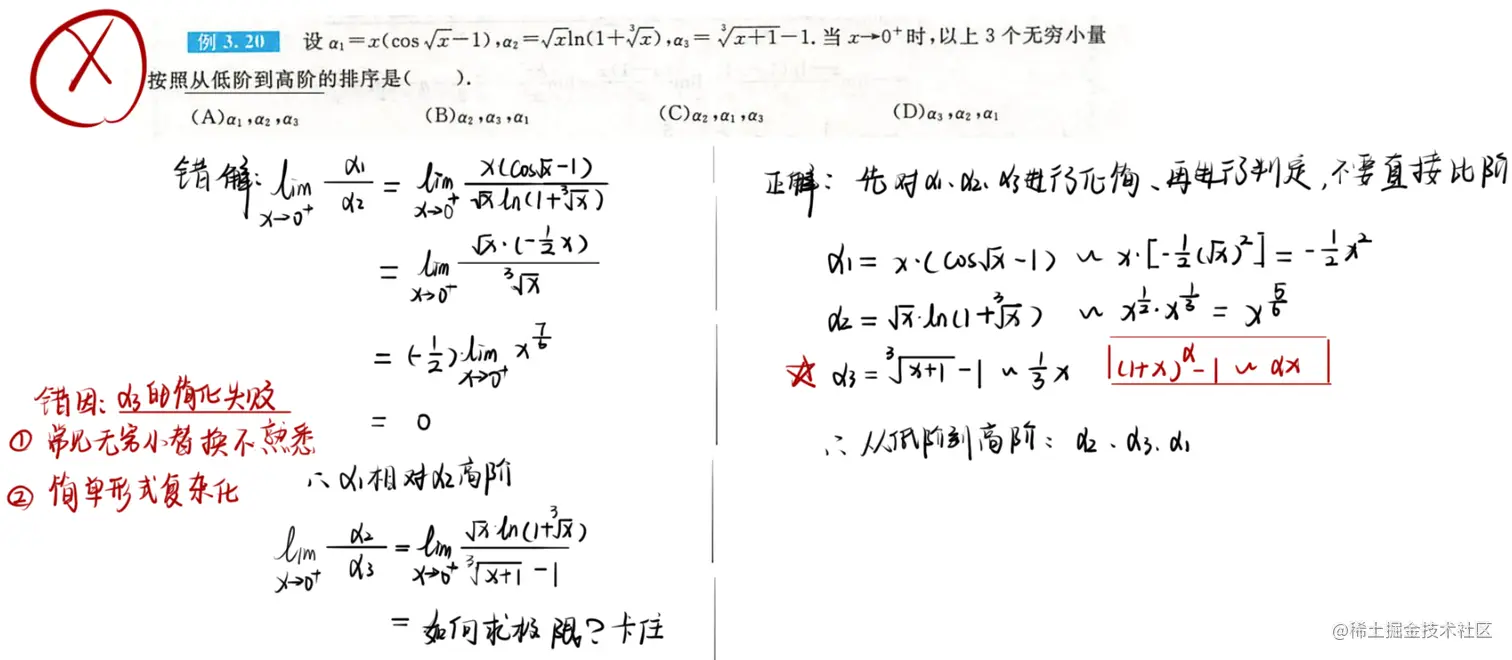 例 3.20 设 α₁=x(cos √x−1),α₂=√xln(1+∛x),α₃=∛(x+1)−1. 当 x→0⁺时,以上 3 个无穷小量
按照从低阶到高阶的排序是(  ).
(A)α₁,α₂,α₃ (B)α₂,α₃,α₁ (C)α₂,α₁,α₃ (D)α₃,α₂,α₁
错解: lim x→0⁺ α₁/α₂ = lim x→0⁺ x(cos√x−1)/(√x ln(1+∛x))
= lim x→0⁺ √x·(−1/2 x)/∛x
= (−1/2)·lim x→0⁺ x^(7/6)
= 0
∴ α₁相对α₂高阶
lim x→0⁺ α₂/α₃ = lim x→0⁺ √x·ln(1+∛x)/(∛(x+1) −1)
= 如何求极限? 卡住
错因: α₃的简化失败
① 常见无穷小替换不熟悉
② 简单形式复杂化
正解: 先对α₁、α₂、α₃进行化简、再进行判定,不要直接比阶
α₁ = x·(cos√x −1) ~ x·[−1/2(√x)²] = −1/2 x²
α₂ = √x·ln(1+∛x) ~ x^(1/2)·x^(1/3) = x^(5/6)
☆ α₃ = ∛(x+1) −1 ~ 1/3 x (1+x)^α −1 ~ αx
∴ 从低阶到高阶: α₂、α₃、α₁
@稀土掘金技术社区